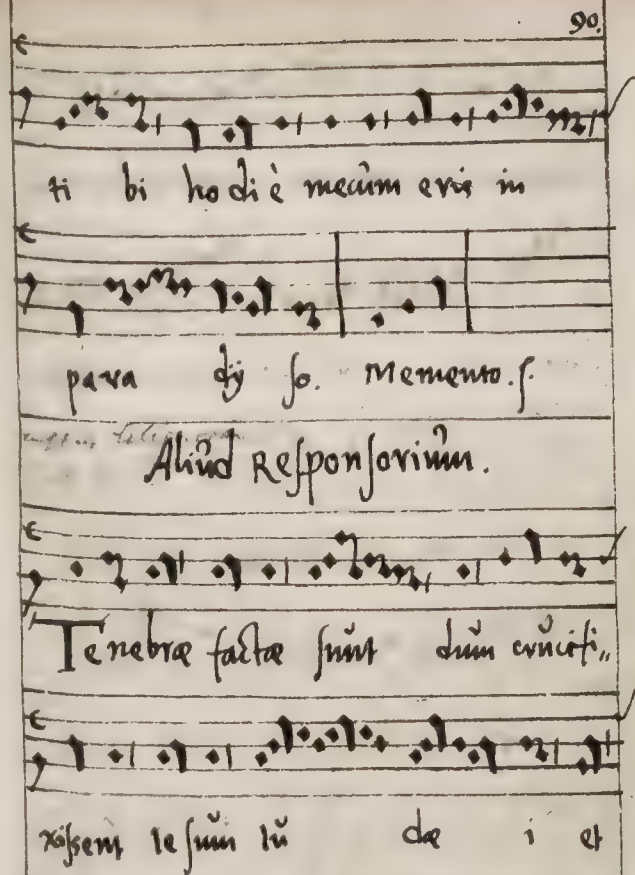 90.
ti bi ho di è mecum eris in
para dy so. Memento. s.
Aliud Responsorium.
Tenebræ factæ sunt dum crucifi,,
xissent Iesum Iu dæ i et